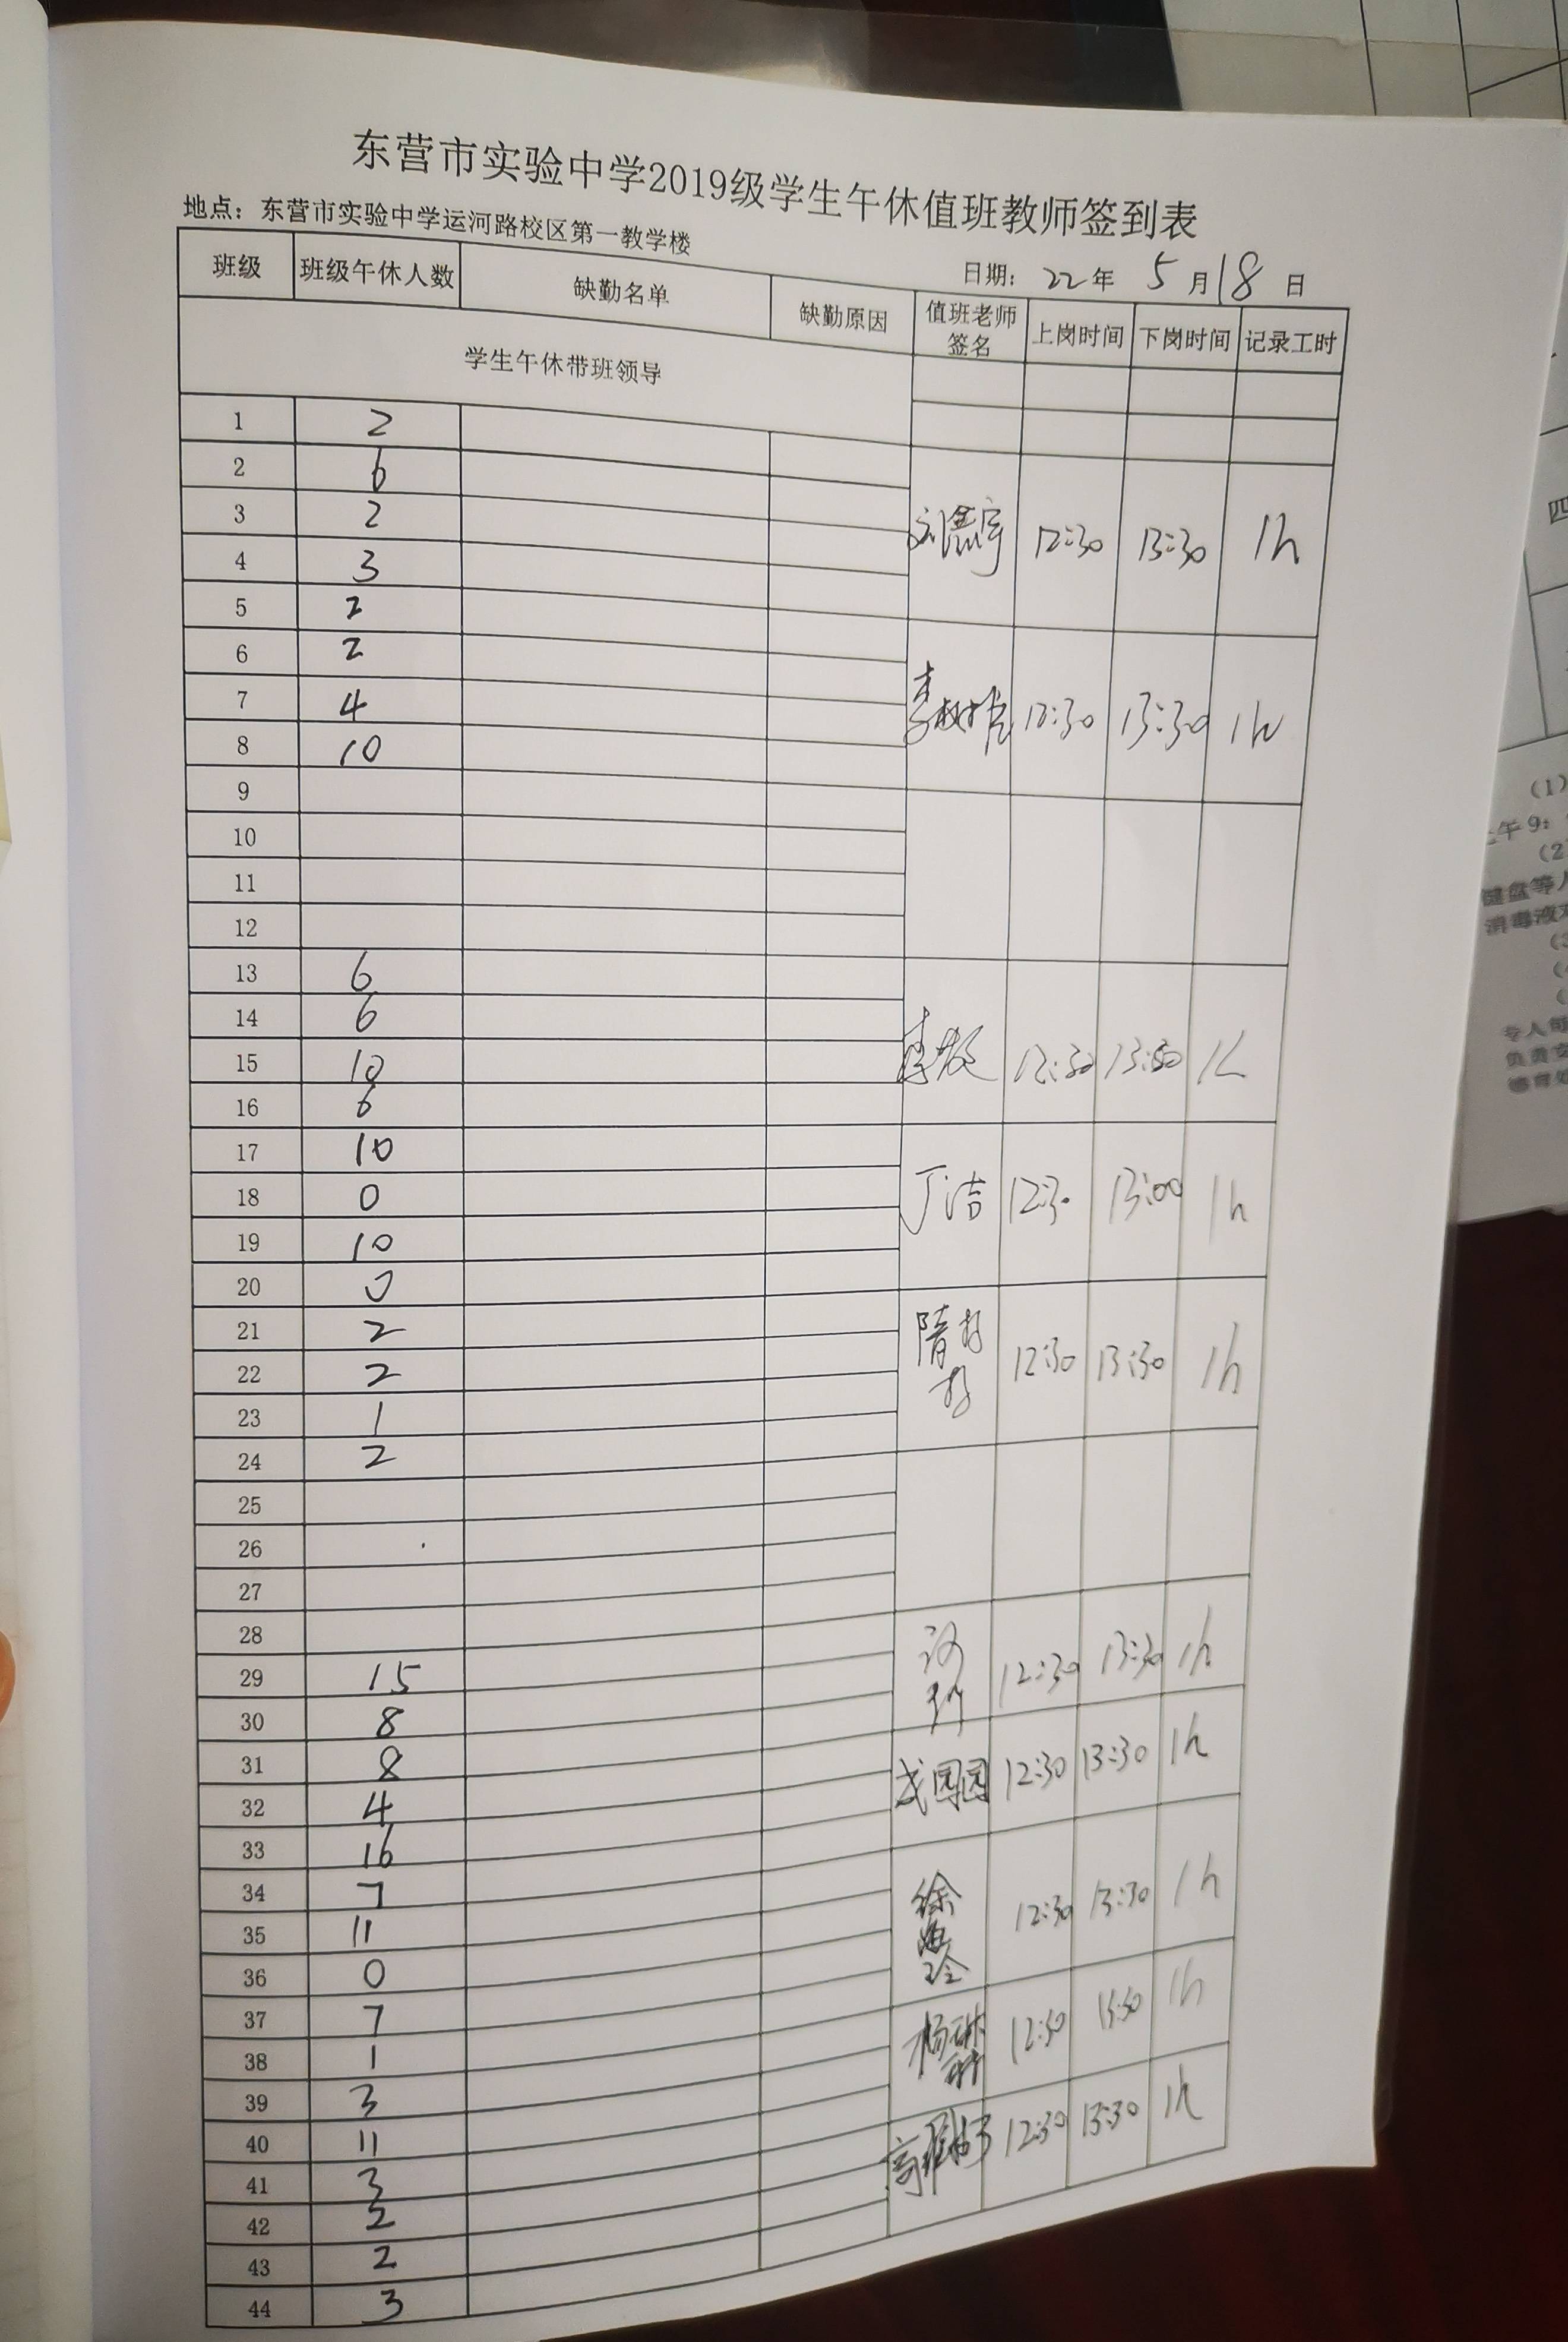 东营市实验中学2019级学生午休值班教师签到表
地点：东营市实验中学运河路校区第一教学楼
日期：22年 5月18日
班级 班级午休人数 缺勤名单 缺勤原因 值班老师签名 上岗时间 下岗时间 记录工时
学生午休带班领导
1 2
2 6
3 2 12:30 13:30 1h
4 3
5 2
6 2
7 4 12:30 13:30 1h
8 10
9
10
11
12
13 6
14 6
15 10 12:30 13:30 1h
16 6
17 10
18 0 丁洁 12:30 13:00 1h
19 10
20 0
21 2
22 2 隋 12:30 13:30 1h
23 1
24 2
25
26
27
28
29 15 12:30 13:30 1h
30 8
31 8 园园 12:30 13:30 1h
32 4
33 16
34 7
35 11 徐海玲 12:30 13:30 1h
36 0
37 7
38 1 杨琳琳 12:30 13:30 1h
39 3
40 11
41 3 高 12:30 13:30 1h
42 2
43 2
44 3
四
(1)
午9:
(2
键盘等人
消毒液
专人
负责